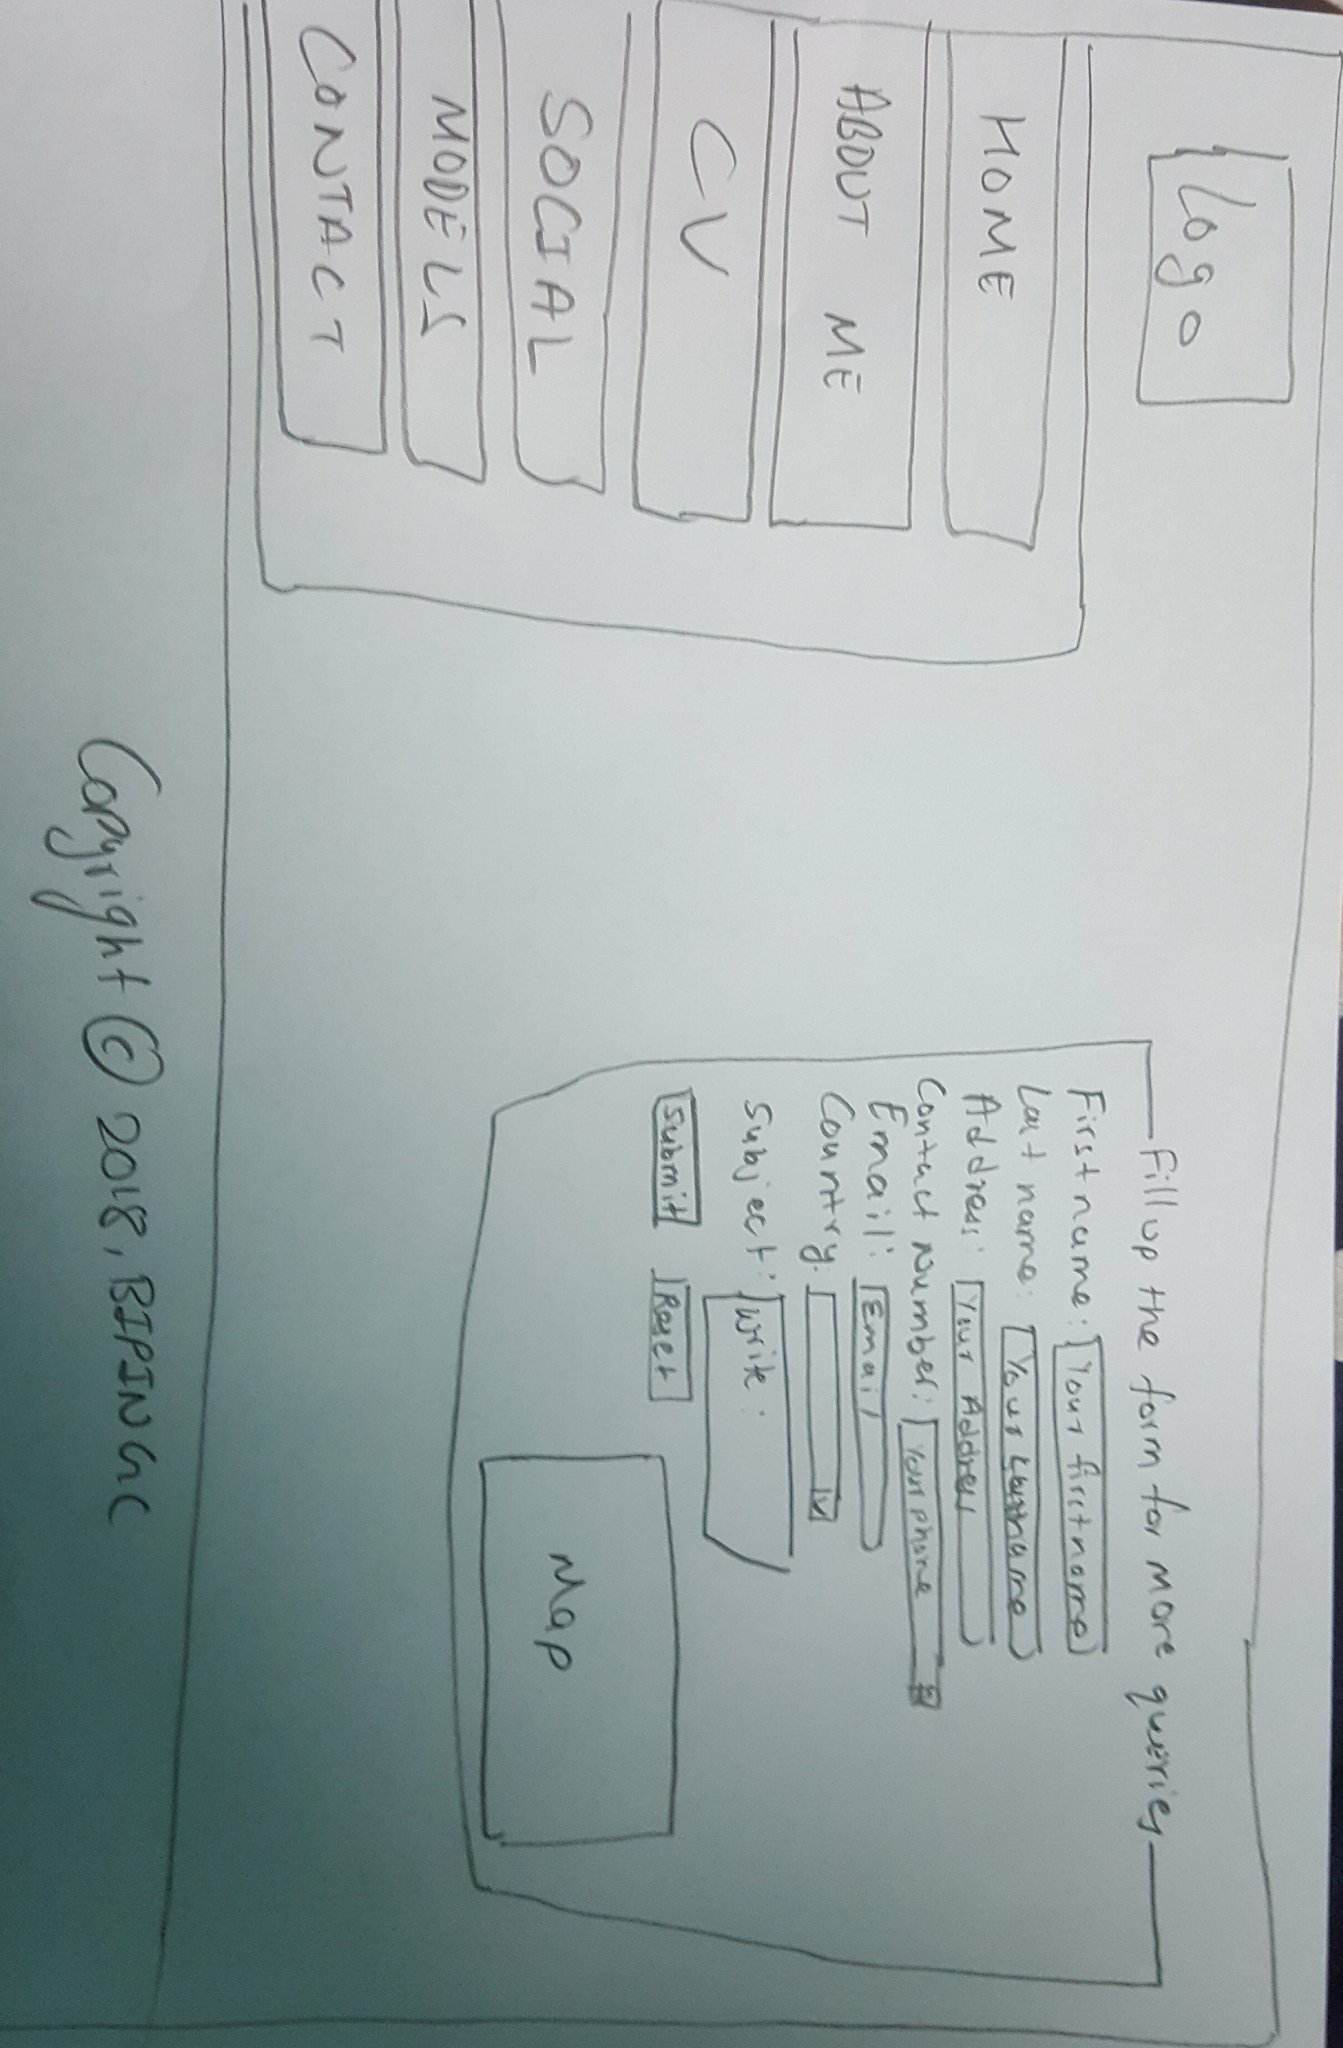 Logo
HOME
ABOUT ME
CV
SOCIAL
MODELS
CONTACT
Fill up the form for more queries
First name: Your first name
Last name: Your Lastname
Address: Your Address
Contact Number: Your phone
Email: Email
Country:
Subject: Write:
Submit Reset
Map
Copyright © 2018, BIPIN GC